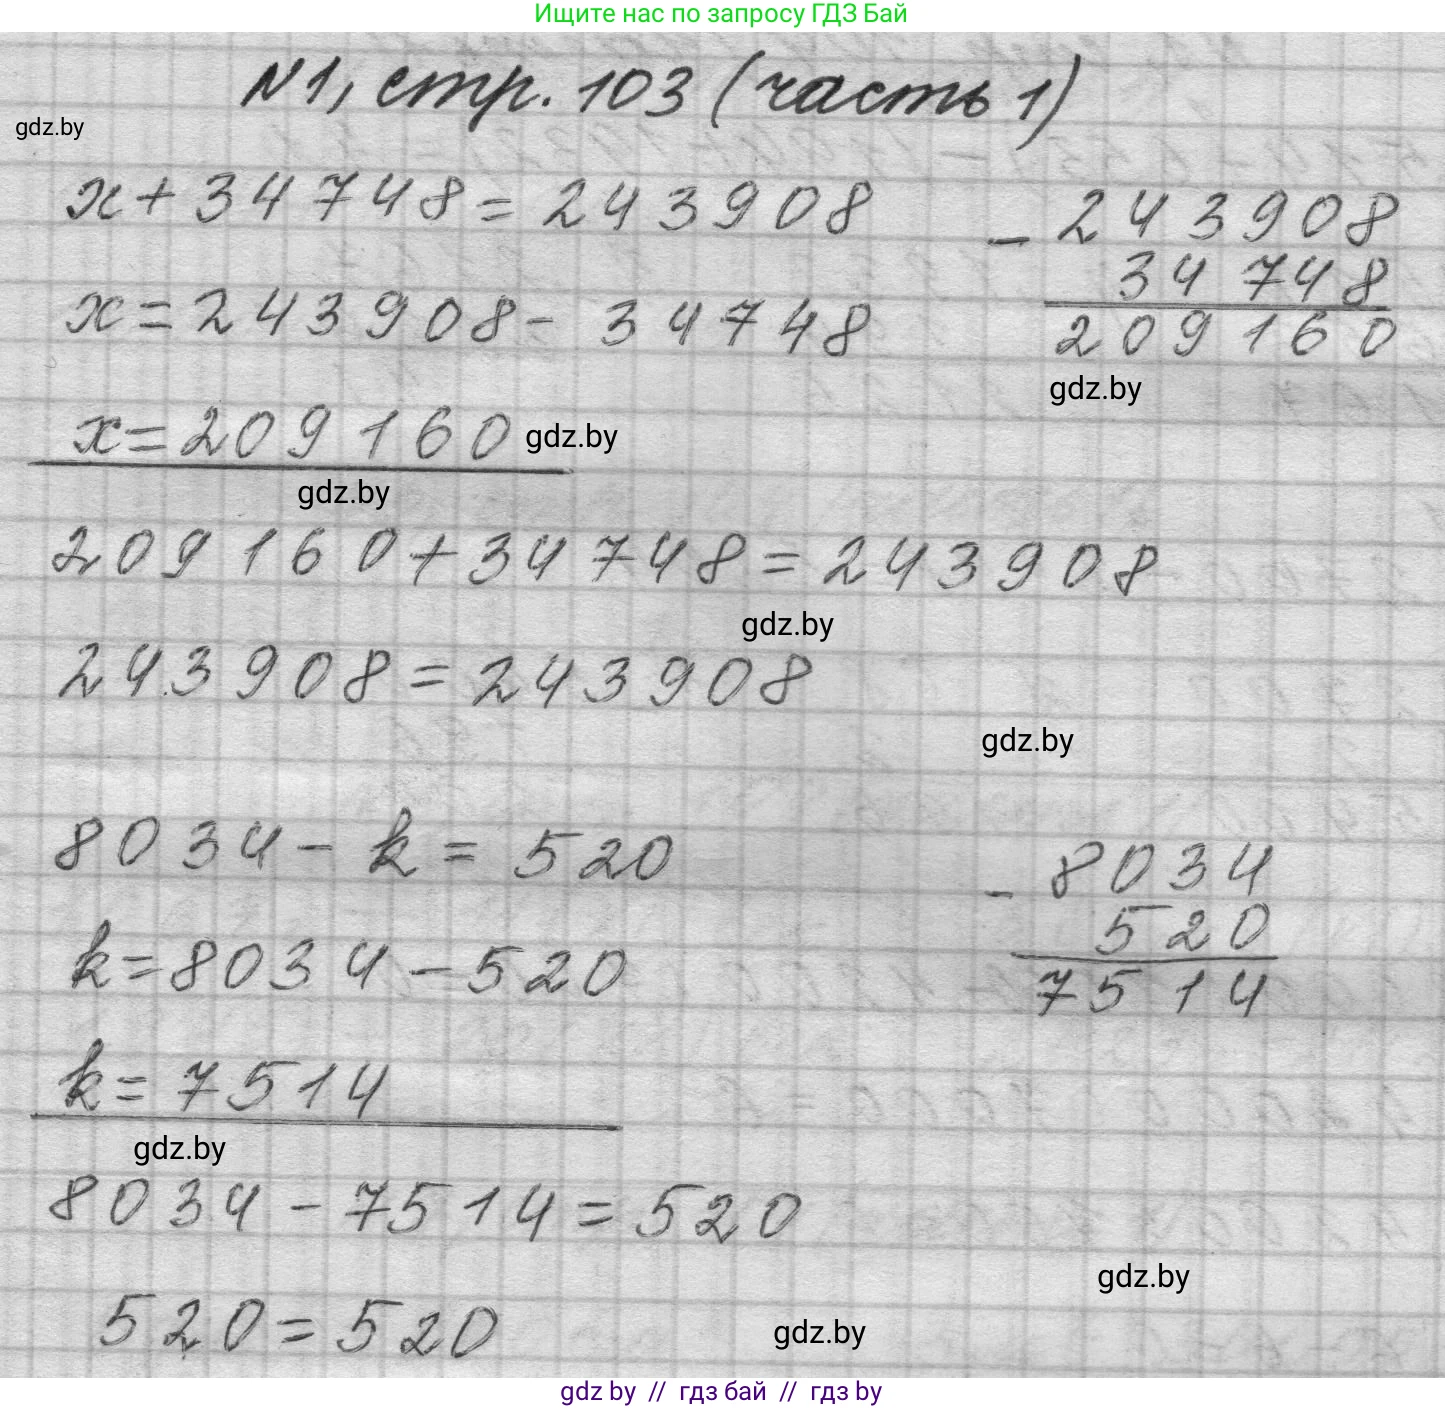 Ищите нас по запросу ГДЗ Бай
N1, стр. 103 (часть 1)
gdz.by
x + 34748 = 243908
x = 243908 - 34748
x = 209160
gdz.by
gdz.by
- 243908
34748
209160
gdz.by
209160 + 34748 = 243908
gdz.by
243908 = 243908
gdz.by
8034 - k = 520
k = 8034 - 520
k = 7514
gdz.by
- 8034
520
7514
8034 - 7514 = 520
gdz.by
520 = 520
gdz.by
gdz by // гдз бай // гдз by